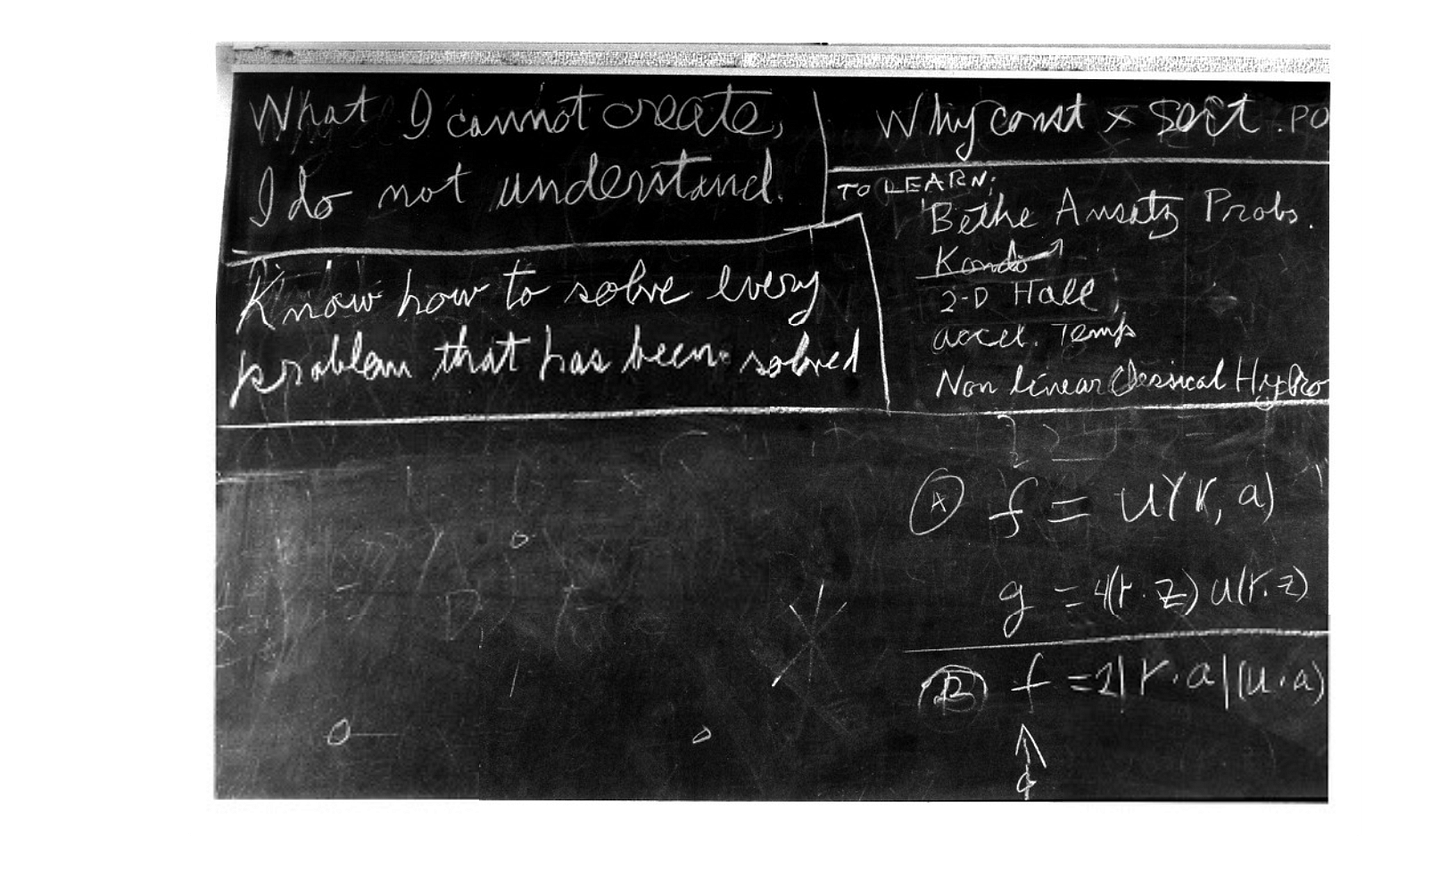 What I cannot create,
I do not understand.
Know how to solve every
problem that has been solved
Why const × sort . PO
TO LEARN:
Bethe Ansatz Probs.
Kondo
2-D Hall
accel. Temp
Non linear Classical Hydro
(A) f = u(r, a)
g = 4(r·z) u(r,z)
(B) f = 2|r·a|(u·a)